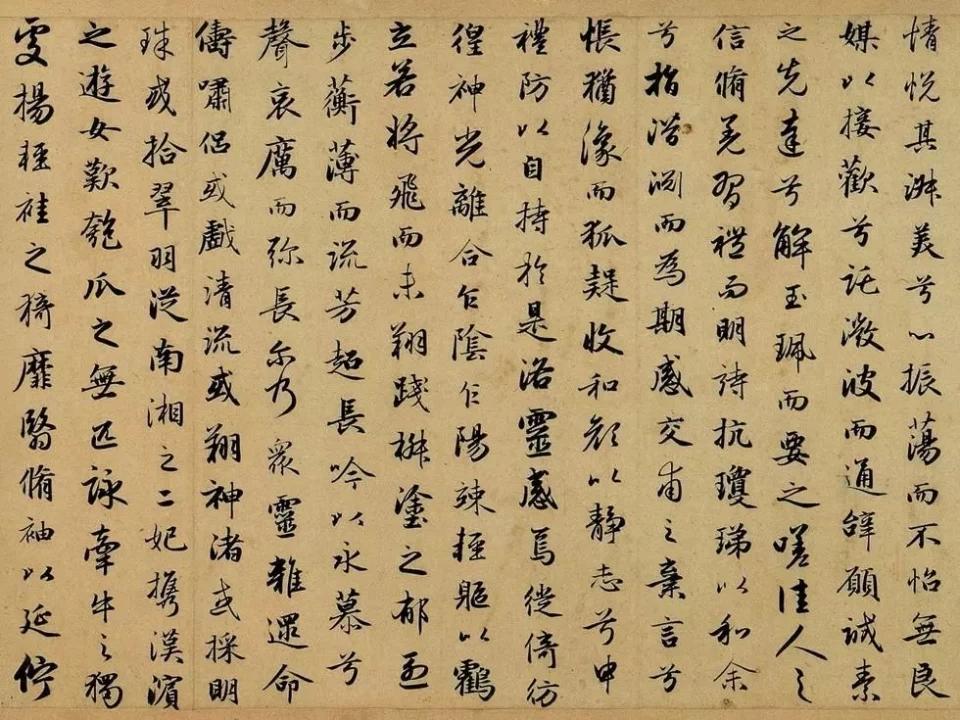 情悅其淑美兮心振蕩而不怡無良
媒以接歡兮託微波而通辭願誠素
之先達兮解玉珮而要之嗟佳人之
信脩羌習禮而明詩抗瓊珶以和余
兮指潛淵而為期感交甫之棄言兮
悵猶豫而狐疑收和顏以靜志兮申
禮防以自持於是洛靈感焉徙倚彷
徨神光離合乍陰乍陽竦輕軀以鶴
立若將飛而未翔踐椒塗之郁烈
步蘅薄而流芳超長吟以永慕兮
聲哀厲而弥長尔乃眾靈雜遝命
儔嘯侶或戲清流或翔神渚或採明
珠或拾翠羽從南湘之二妃攜漢濱
之遊女歎匏瓜之無匹詠牽牛之獨
處揚輕袿之猗靡翳脩袖以延佇